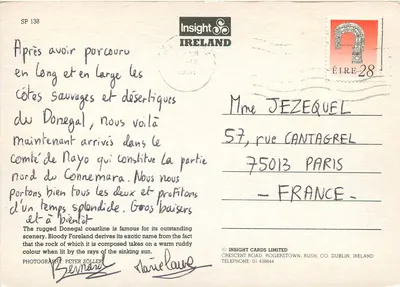 SP 138
Insight
IRELAND
ÉIRE 28
Après avoir parcouru
en long et en large les
côtes sauvages et désertiques
du Donegal, nous voilà
maintenant arrivés dans le
comté de Mayo qui constitue la partie
nord du Connemara. Nous nous
portons bien tous les deux et profitons
d'un temps splendide. Gros baisers
et à bientôt
Mme JEZEQUEL
57, rue CANTAGREL
75013 PARIS
- FRANCE -
The rugged Donegal coastline is famous for its outstanding
scenery. Bloody Foreland derives its exotic name from the fact
that the rock of which it is composed takes on a warm ruddy
colour when lit by the rays of the sinking sun.
PHOTOGRAPH: PETER ZÖLLER
Bernard
Marie Laure
© INSIGHT CARDS LIMITED
CRESCENT ROAD, ROGERSTOWN, RUSH, CO. DUBLIN, IRELAND
TELEPHONE: 01 438644